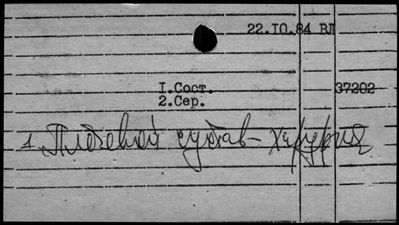 22.IO.84 ВЛ
I.Сост. 37202
2.Сер.
1. Плечевой сустав - хирургия